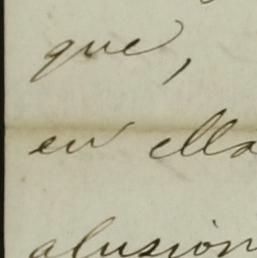 que,
en ella
alusión